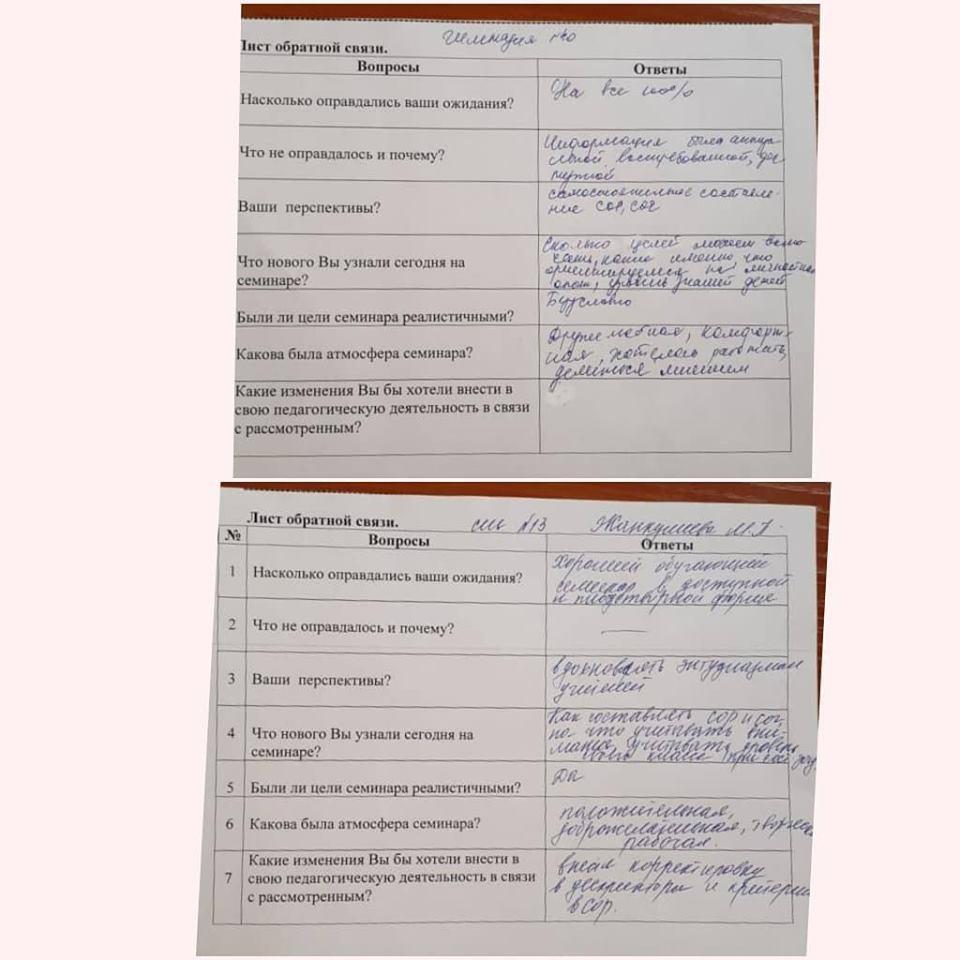 Лист обратной связи. Гимназия №40
Вопросы Ответы
Насколько оправдались ваши ожидания? На все 100%
Что не оправдалось и почему? Информация была актуа
льной, востребованной,
нужной
Ваши перспективы? самостоятельное составле-
ние СОР, СОЧ
Что нового Вы узнали сегодня на
семинаре?
Сколько целей можем
какие именно, что
ориентируемся на личностный
опыт, уровень знаний детей
Были ли цели семинара реалистичными? Безусловно
Какова была атмосфера семинара? Дружелюбная, комфорт-
ная, хотелось работать,
делиться мнением
Какие изменения Вы бы хотели внести в
свою педагогическую деятельность в связи
с рассмотренным?
Лист обратной связи. №13 Жанкулиева М.
№ Вопросы Ответы
1 Насколько оправдались ваши ожидания? Хороший обучающий
семинар в доступной
и плодотворной форме
2 Что не оправдалось и почему? —
3 Ваши перспективы? вдохновлять энтузиазмом
учителей
4 Что нового Вы узнали сегодня на
семинаре?
Как составлять сор и соч,
на что учитывать вни-
мание, учитывать уровень
всего класса при
5 Были ли цели семинара реалистичными? Да
6 Какова была атмосфера семинара? положительная,
доброжелательная,
рабочая.
7 Какие изменения Вы бы хотели внести в
свою педагогическую деятельность в связи
с рассмотренным?
корректировку
в дескрипторы и критерии
в сор.